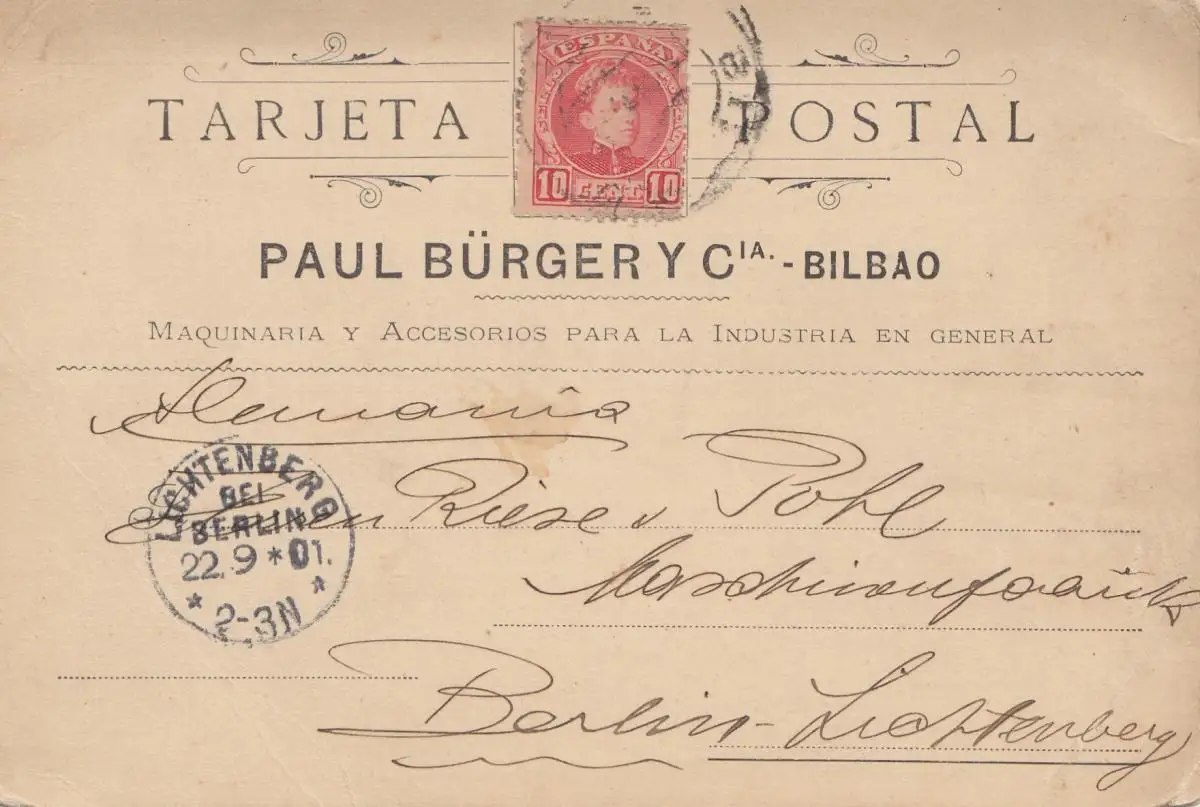 TARJETA POSTAL
ESPAÑA
10 CENT. 10
PAUL BÜRGER Y CIA. - BILBAO
MAQUINARIA Y ACCESORIOS PARA LA INDUSTRIA EN GENERAL
Alemania
Riese & Pohl
Maschinenfabrik
Berlin-Lichtenberg
LICHTENBERG
BEI
BERLIN
22.9*01.
* 2-3N *